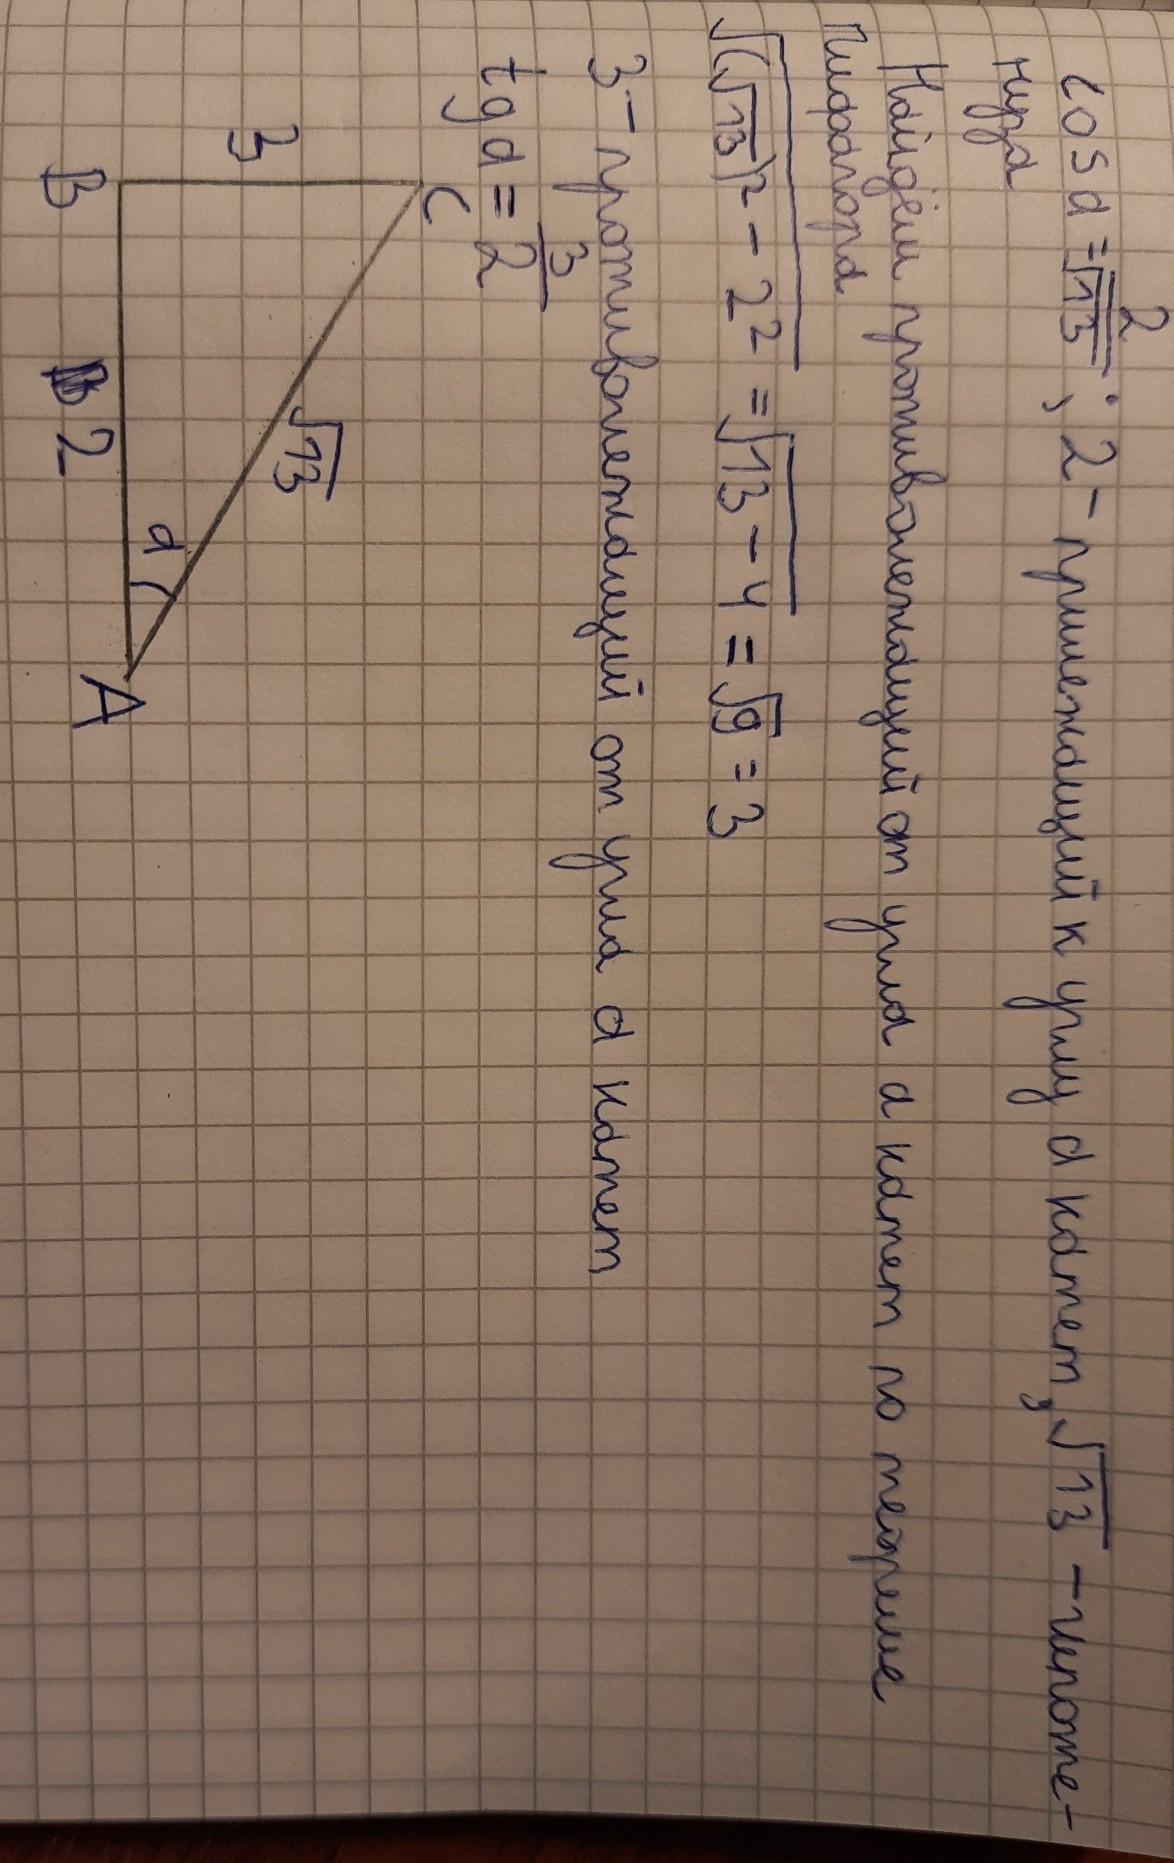 cos α = 2/√13; 2 - прилежащий к углу α катет, √13 - гипоте-
нуза
Найдём противолежащий от угла α катет по теореме
Пифагора
√((√13)² - 2²) = √(13 - 4) = √9 = 3
3 - противолежащий от угла α катет
tg α = 3/2
C
3
√13
α
B
2
A